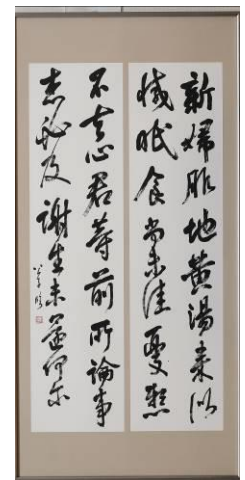 新婦服地黃湯來似
減眠食尚未佳憂懸
不去心君等前所論事
必及謝生未還何尔